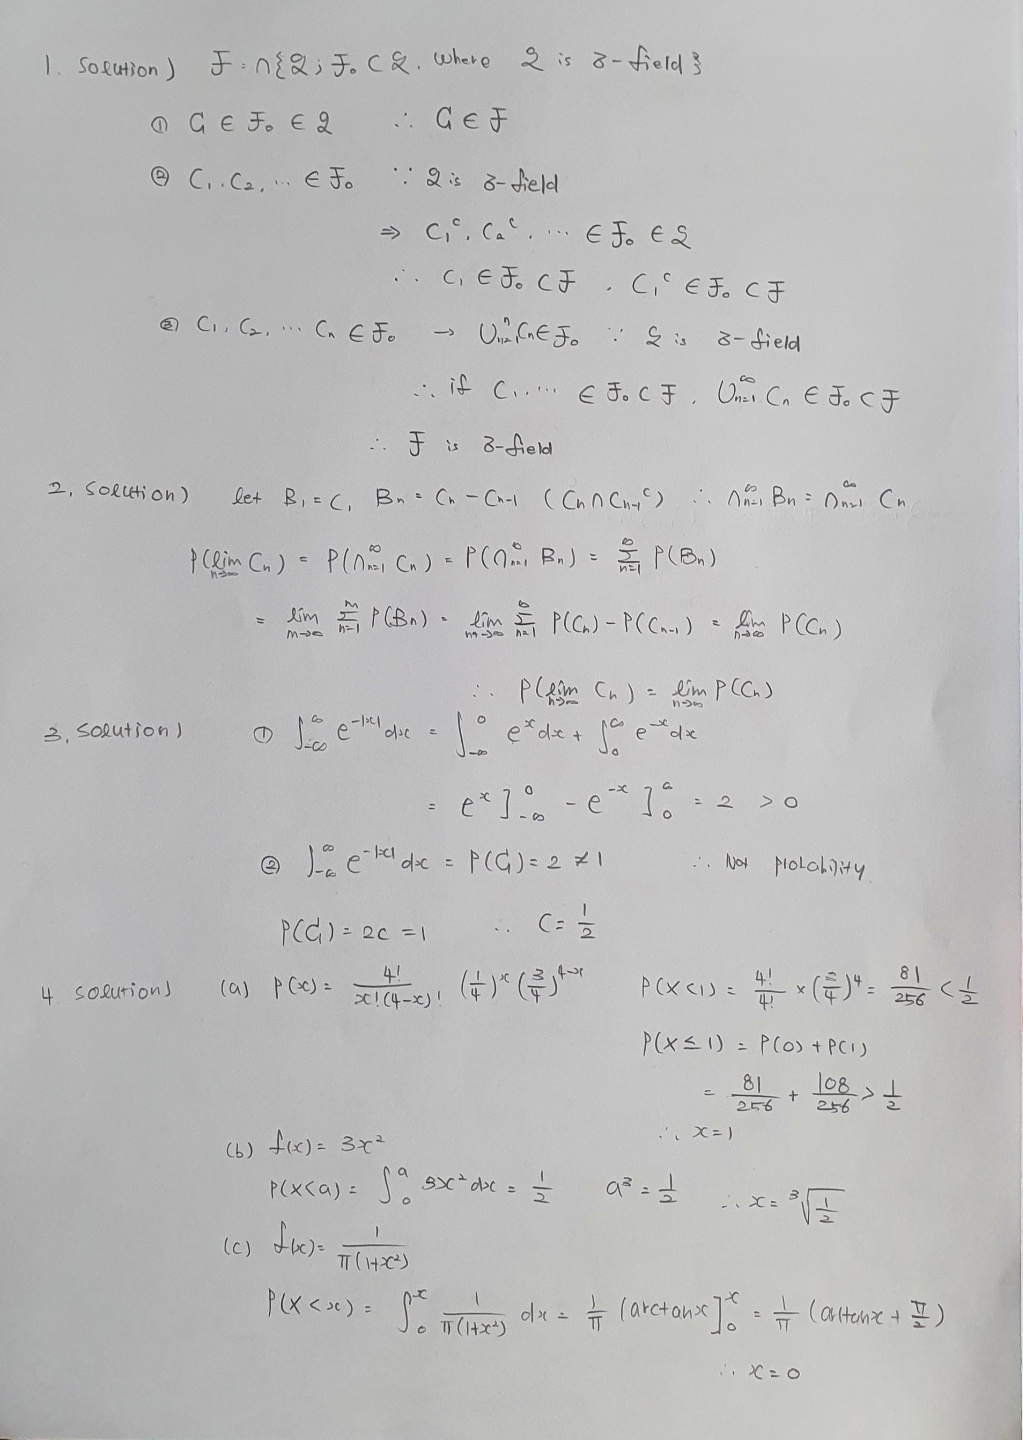 1. Solution) F = ∩{Q ; F₀ ⊂ Q, where Q is 3-field}
① G ∈ F₀ ∈ Q ∴ G ∈ F
② C₁, C₂, ... ∈ F₀ ∵ Q is 3-field
⇒ C₁ᶜ, C₂ᶜ, ... ∈ F₀ ∈ Q
∴ C₁ ∈ F₀ ⊂ F, C₁ᶜ ∈ F₀ ⊂ F
③ C₁, C₂, ... Cₙ ∈ F₀ → ∪ₙ₌₁ⁿ Cₙ ∈ F₀ ∵ Q is 3-field
∴ if C₁, ... ∈ F₀ ⊂ F, ∪ₙ₌₁^∞ Cₙ ∈ F₀ ⊂ F
∴ F is 3-field
2. Solution) let B₁ = C, Bₙ = Cₙ - Cₙ₋₁ (Cₙ ∩ Cₙ₋₁ᶜ) ∴ ∩ₙ₌₁^∞ Bₙ = ∩ₙ₌₁^∞ Cₙ
P(lim_{n→∞} Cₙ) = P(∩ₙ₌₁^∞ Cₙ) = P(∩ₙ₌₁^∞ Bₙ) = Σₙ₌₁^∞ P(Bₙ)
= lim_{m→∞} Σₙ₌₁^m P(Bₙ) = lim_{m→∞} Σₙ₌₁^∞ P(Cₙ) - P(Cₙ₋₁) = lim_{n→∞} P(Cₙ)
∴ P(lim_{n→∞} Cₙ) = lim_{n→∞} P(Cₙ)
3. Solution) ① ∫_{-∞}^{∞} e^{-|x|} dx = ∫_{-∞}^{0} e^x dx + ∫_0^∞ e^{-x} dx
= e^x ]_{-∞}^0 - e^{-x} ]_0^∞ = 2 > 0
② ∫_{-∞}^{∞} e^{-|x|} dx = P(G) = 2 ≠ 1 ∴ Not probability
P(G) = 2c = 1 ∴ C = 1/2
4 solution) (a) P(x) = 4!/(x!(4-x)!) (1/4)^x (3/4)^{4-x} P(X<1) = 4!/4! × (3/4)^4 = 81/256 < 1/2
P(X ≤ 1) = P(0) + P(1)
= 81/256 + 108/256 > 1/2
∴ x = 1
(b) f(x) = 3x²
P(X<a) = ∫_0^a 3x² dx = 1/2 a³ = 1/2 ∴ x = ³√(1/2)
(c) f(x) = 1/(π(1+x²))
P(X<x) = ∫_0^x 1/(π(1+x²)) dx = 1/π (arctanx]_0^x = 1/π (arctanx + π/2)
∴ x = 0